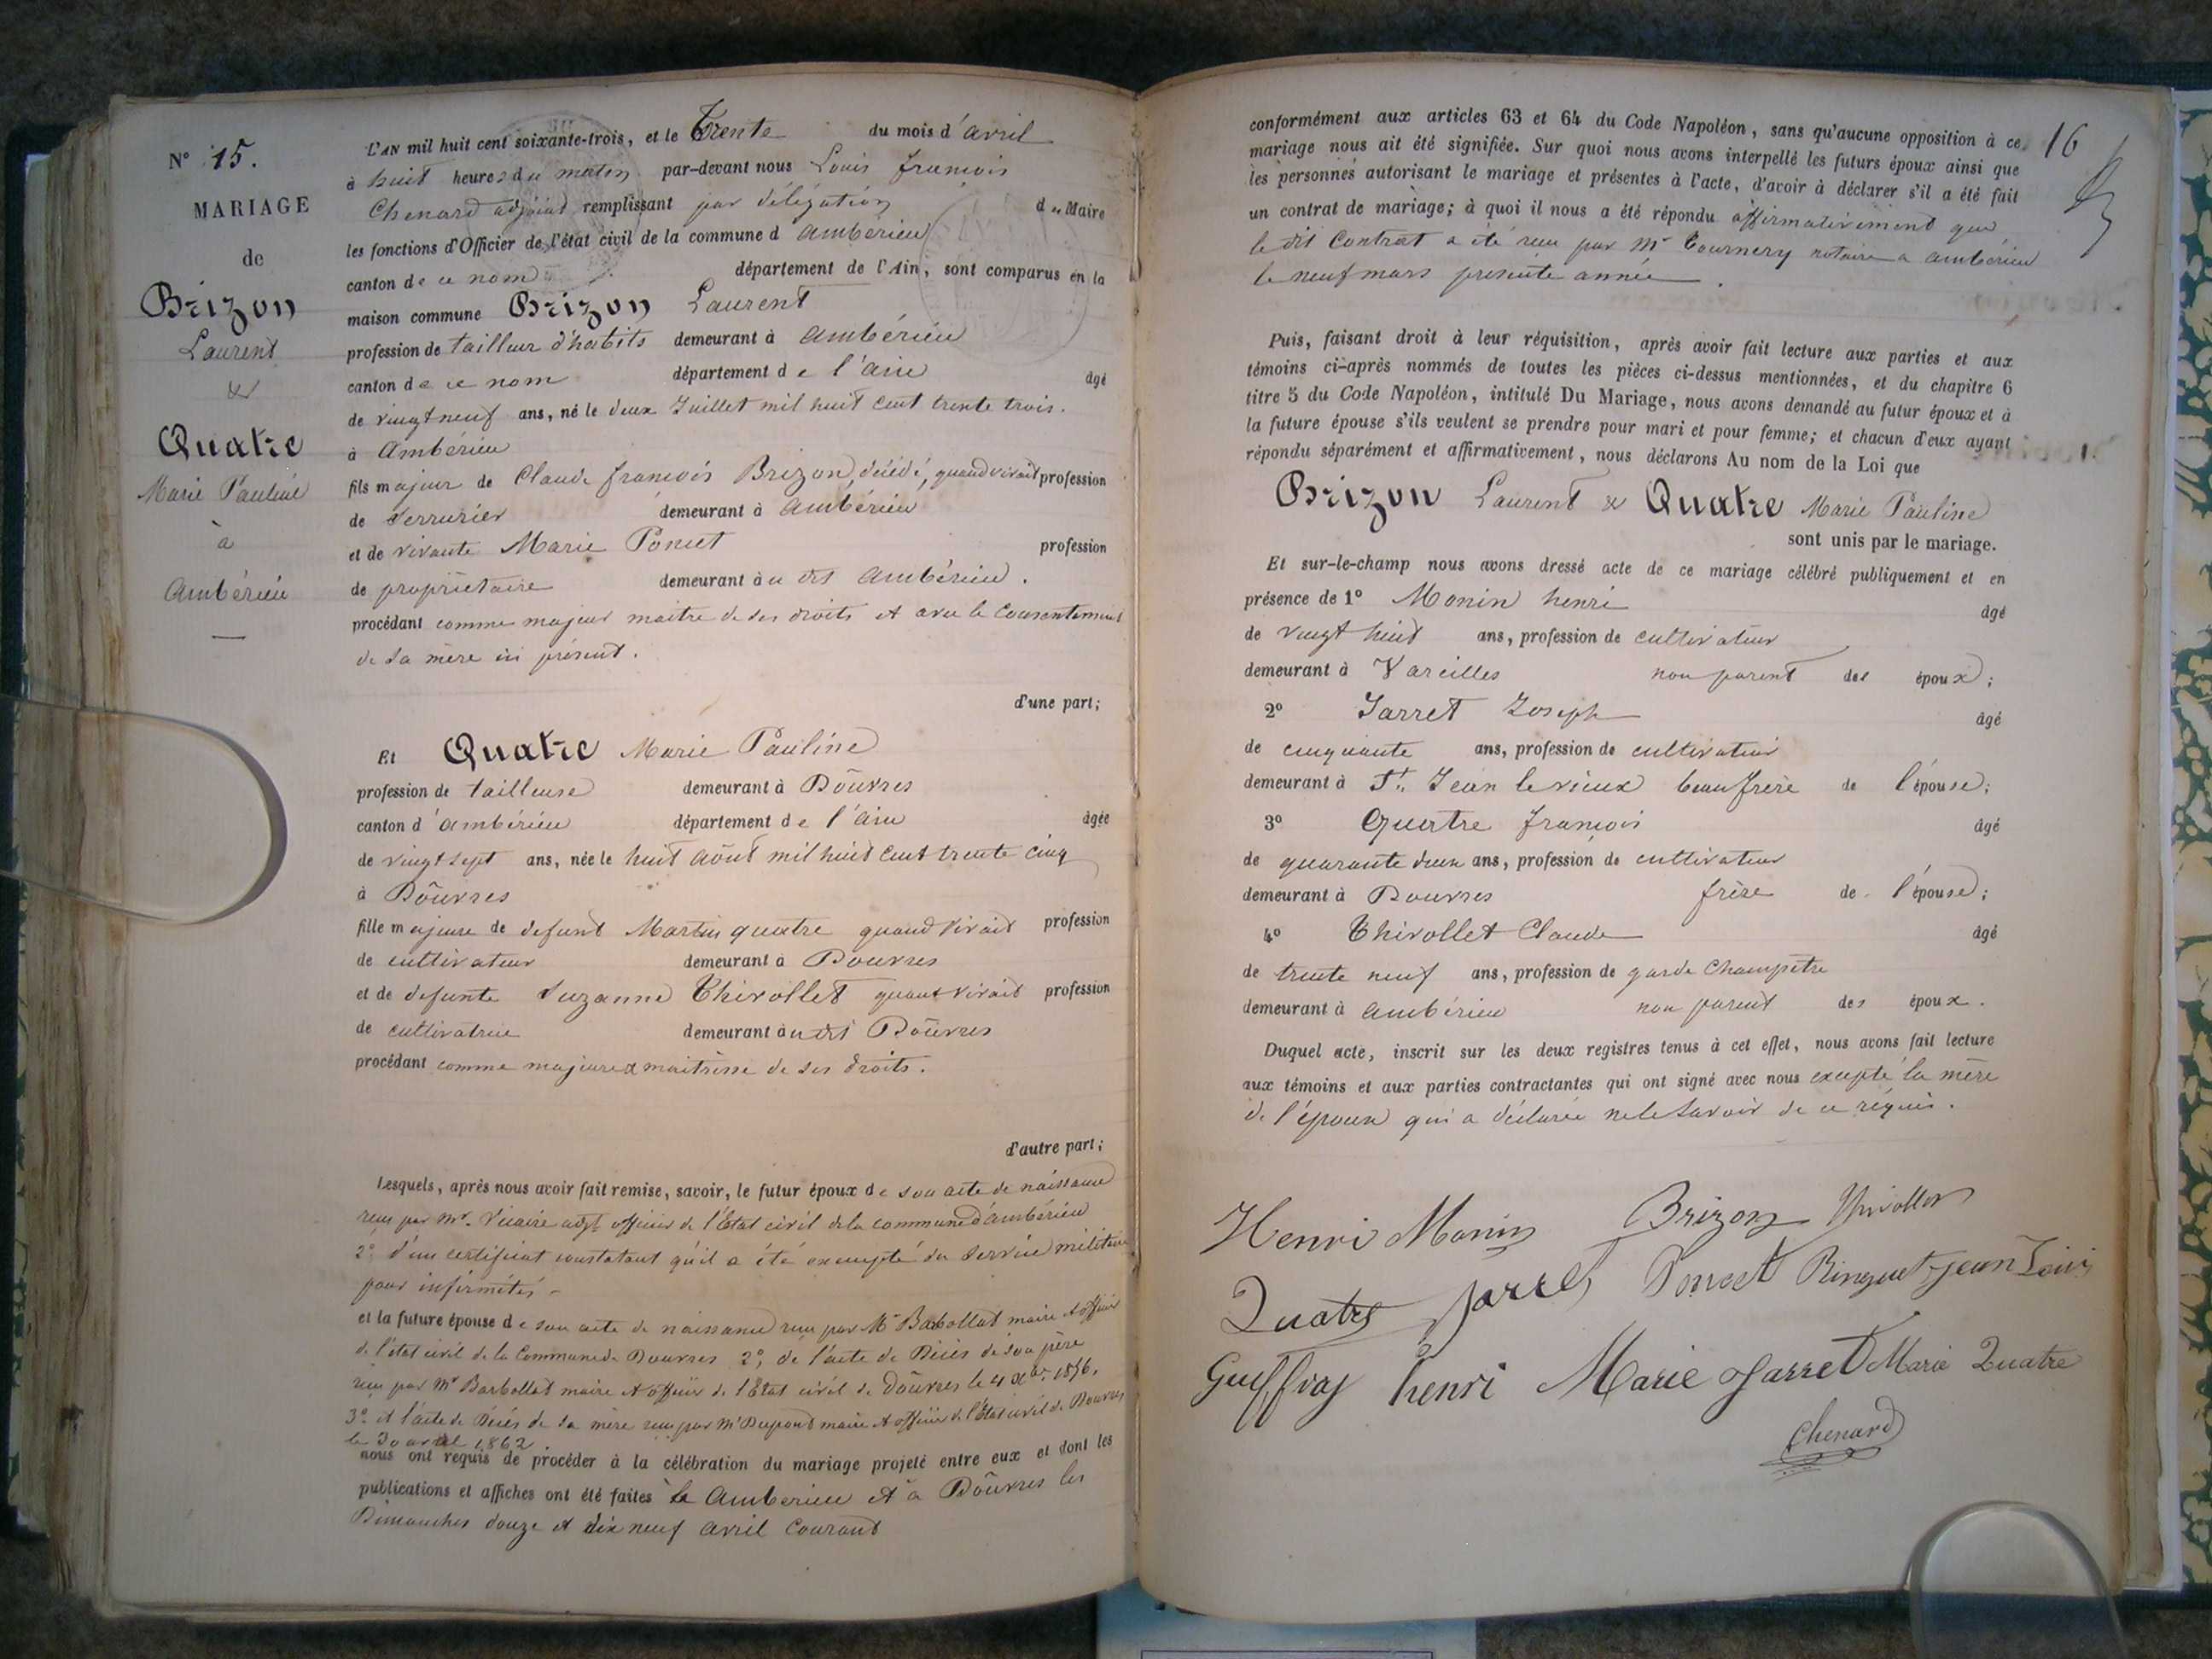 N° 15.
MARIAGE
de
Brizon
Laurent
&
Quatre
Marie Pauline
à
Ambérieu
L'AN mil huit cent soixante-trois, et le Trente du mois d'avril
à huit heures du matin par-devant nous Louis françois
Chenard adjoint remplissant par délégation du Maire
les fonctions d'Officier de l'état civil de la commune d'ambérieu
canton de ce nom département de l'Ain, sont comparus en la
maison commune Brizon Laurent
profession de tailleur d'habits demeurant à ambérieu
canton de ce nom département de l'ain âgé
de vingt neuf ans, né le deux Juillet mil huit cent trente trois.
à Ambérieu
fils majeur de Claude françois Brizon, décédé, quand vivait profession
de serrurier demeurant à Ambérieu
et de vivante Marie Poncet profession
de propriétaire demeurant au dit Ambérieu.
procédant comme majeur maître de ses droits et avec le consentement
de sa mère ici présent.
d'une part;
Et Quatre Marie Pauline
profession de tailleuse demeurant à Douvres
canton d'ambérieu département de l'ain âgée
de vingt sept ans, née le huit août mil huit cent trente cinq
à Douvres
fille majeure de defunt Martin quatre quand vivait profession
de cultivateur demeurant à Douvres
et de defunte Suzanne Thivollet quand vivait profession
de cultivatrice demeurant au dit Douvres
procédant comme majeure & maîtresse de ses droits.
d'autre part;
Lesquels, après nous avoir fait remise, savoir, le futur époux de son acte de naissance
reçu par Mr. Vicaire adjt officier de l'Etat civil de la commune d'ambérieu
2° d'un certificat constatant qu'il a été exempté du service militaire
pour infirmités -
et la future épouse de son acte de naissance reçu par Mr Barbollat maire et officier
de l'état civil de la Commune de Douvres 2°, de l'acte de Décès de son père
reçu par Mr Barbollat maire et officier de l'Etat civil de Douvres le 4 xbre 1856.
3° et l'acte de Décès de sa mère reçu par Mr Dupont maire et officier de l'état civil de Douvres
le 30 avril 1862.
nous ont requis de procéder à la célébration du mariage projeté entre eux et dont les
publications et affiches ont été faites à Amberieu et à Douvres les
Dimanches douze et dix neuf avril Courant
16
conformément aux articles 63 et 64 du Code Napoléon, sans qu'aucune opposition à ce
mariage nous ait été signifiée. Sur quoi nous avons interpellé les futurs époux ainsi que
les personnes autorisant le mariage et présentes à l'acte, d'avoir à déclarer s'il a été fait
un contrat de mariage; à quoi il nous a été répondu affirmativement que
le dit Contrat a été reçu par Mr Tournery notaire a ambérieu
le neuf mars presente année.
Puis, faisant droit à leur réquisition, après avoir fait lecture aux parties et aux
témoins ci-après nommés de toutes les pièces ci-dessus mentionnées, et du chapitre 6
titre 5 du Code Napoléon, intitulé Du Mariage, nous avons demandé au futur époux et à
la future épouse s'ils veulent se prendre pour mari et pour femme; et chacun d'eux ayant
répondu séparément et affirmativement, nous déclarons Au nom de la Loi que
Brizon Laurent & Quatre Marie Pauline
sont unis par le mariage.
Et sur-le-champ nous avons dressé acte de ce mariage célébré publiquement et en
présence de 1° Monin henri âgé
de vingt huit ans, profession de cultivateur
demeurant à Vareilles non parent des époux;
2° Jarret Joseph âgé
de cinquante ans, profession de cultivateur
demeurant à St. Jean le vieux beau frère de l'épouse;
3° Quatre françois âgé
de quarante deux ans, profession de cultivateur
demeurant à Douvres frère de l'épouse;
4° Thivollet Claude âgé
de trente neuf ans, profession de garde Champêtre
demeurant à Ambérieu non parent des époux.
Duquel acte, inscrit sur les deux registres tenus à cet effet, nous avons fait lecture
aux témoins et aux parties contractantes qui ont signé avec nous excepté la mère
de l'époux qui a déclarée ne le savoir de ce requis.
Henri Monin Brizon Thivollet
Quatre Jarret Poncet jean Louis
Guiffray henri Marie Jarret Marie Quatre
Chenard